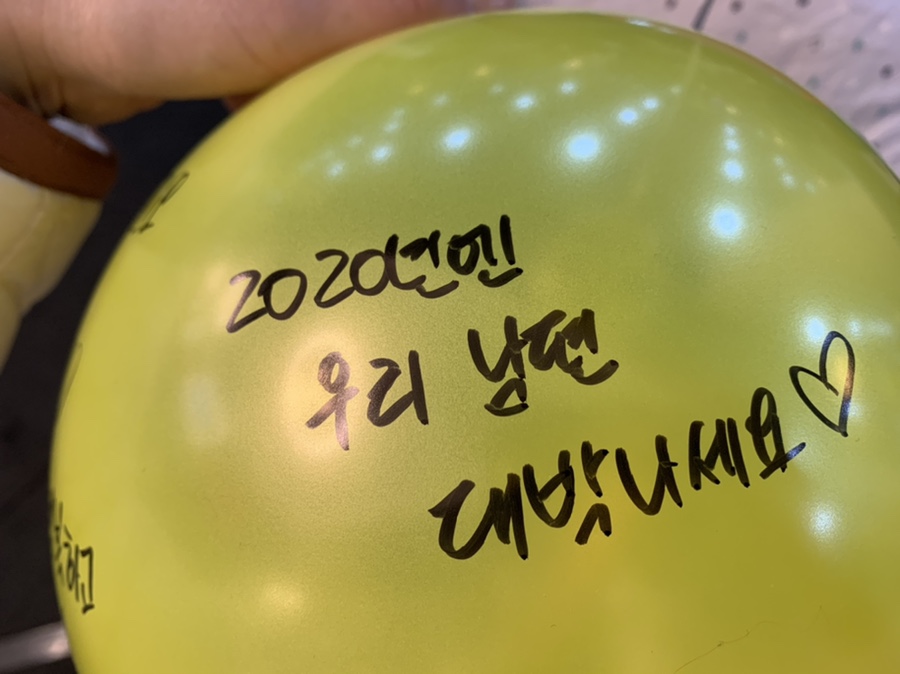 2020년엔
우리 남편
대박나세요♡
하고